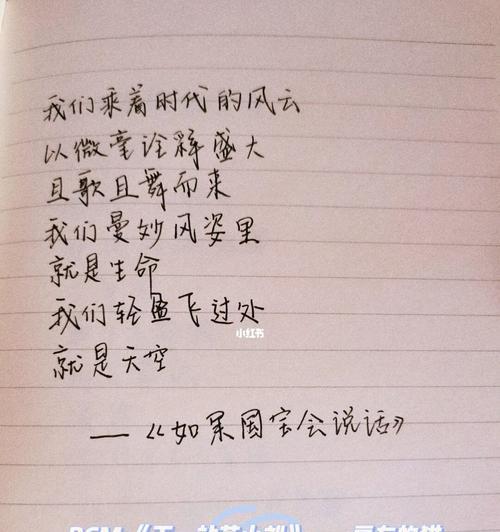 我们乘着时代的风云
以微毫诠释盛大
且歌且舞而来
我们曼妙风姿里
就是生命
我们轻盈飞过处
小红书
就是天空
——《如果国宝会说话》